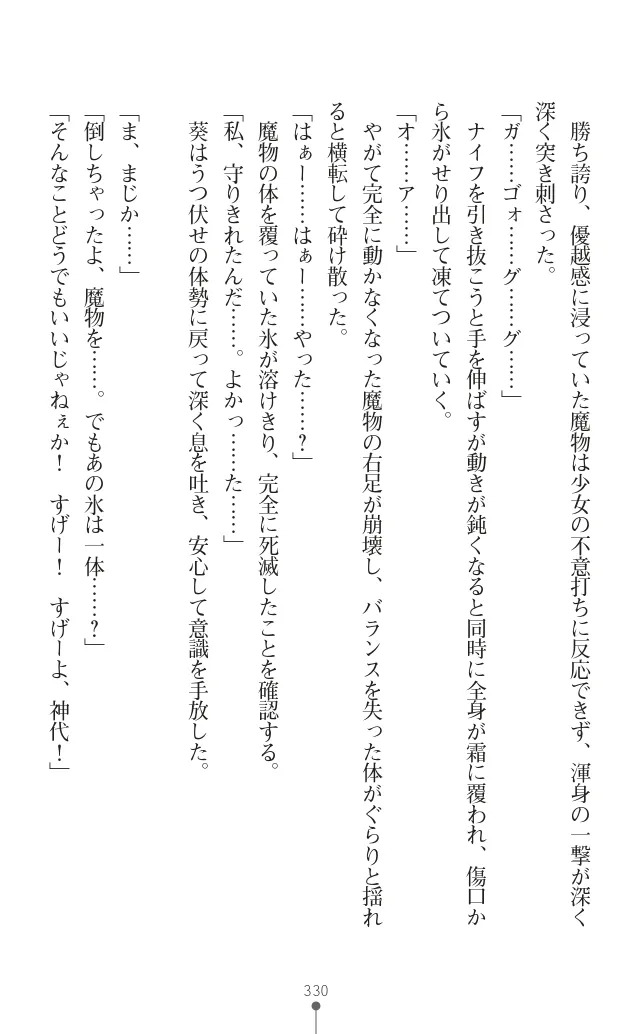 勝ち誇り、優越感に浸っていた魔物は少女の不意打ちに反応できず、渾身の一撃が深く
深く突き刺さった。
「ガ……ゴォ……グ……グ……」
ナイフを引き抜こうと手を伸ばすが動きが鈍くなると同時に全身が霜に覆われ、傷口か
ら氷がせり出して凍てついていく。
「オ……ア……」
やがて完全に動かなくなった魔物の右足が崩壊し、バランスを失った体がぐらりと揺れ
ると横転して砕け散った。
「はぁー……はぁー……やった……?」
魔物の体を覆っていた氷が溶けきり、完全に死滅したことを確認する。
「私、守りきれたんだ……。よかっ……た……」
葵はうつ伏せの体勢に戻って深く息を吐き、安心して意識を手放した。
「ま、まじか……」
「倒しちゃったよ、魔物を……。でもあの氷は一体……?」
「そんなことどうでもいいじゃねぇか!　すげー!　すげーよ、神代!」
330